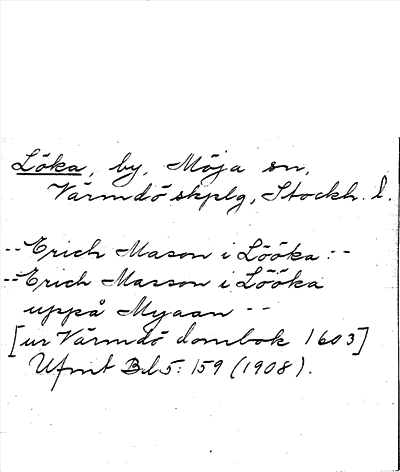 Löka, by, Möja sn,
Värmdö skplg, Stockh. l.
-- Erich Mason i Lööka : -
-- Erich Masson i Lööka
uppå Myaan - -
[ur Värmdö dombok 1603]
Ufmt Bd 5: 159 (1908).